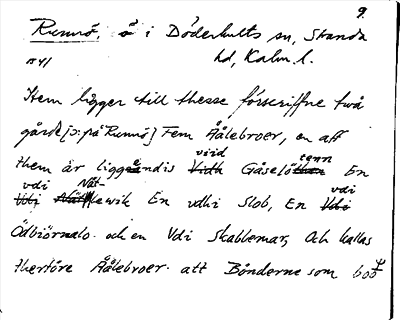 9.
Runnö, ö i Döderhults sn, Stranda
hd, Kalm. l.
1741
Item ligger till thesse förscriffne två
gårde [ɔ: på Runnö] Fem Åålebroer, en aff
them är liggændis vrid Gåselötenn En
vdi Näsewik En vdhi Slob, En vdi
Ödbiörnalo och en Vdi Skablemar, Och kallas
therföre Åålebroer att Bönderne som boo